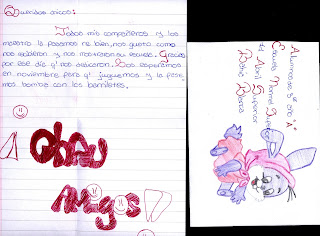 Queridos chicos:
Todos mis compañeros y los
maestros la pasamos re bien, nos gusto como
nos recibieron y nos mostraron su escuela. Gracias
por ese día q' nos dedicaron. Los esperamos
en noviembre para q' juguemos y la pase-
mos bomba con los barriletes.
Chau
Amigos
Alumnos de 5º año "A"
Escuela Manuel
El Abra Superior
Bahía Blanca